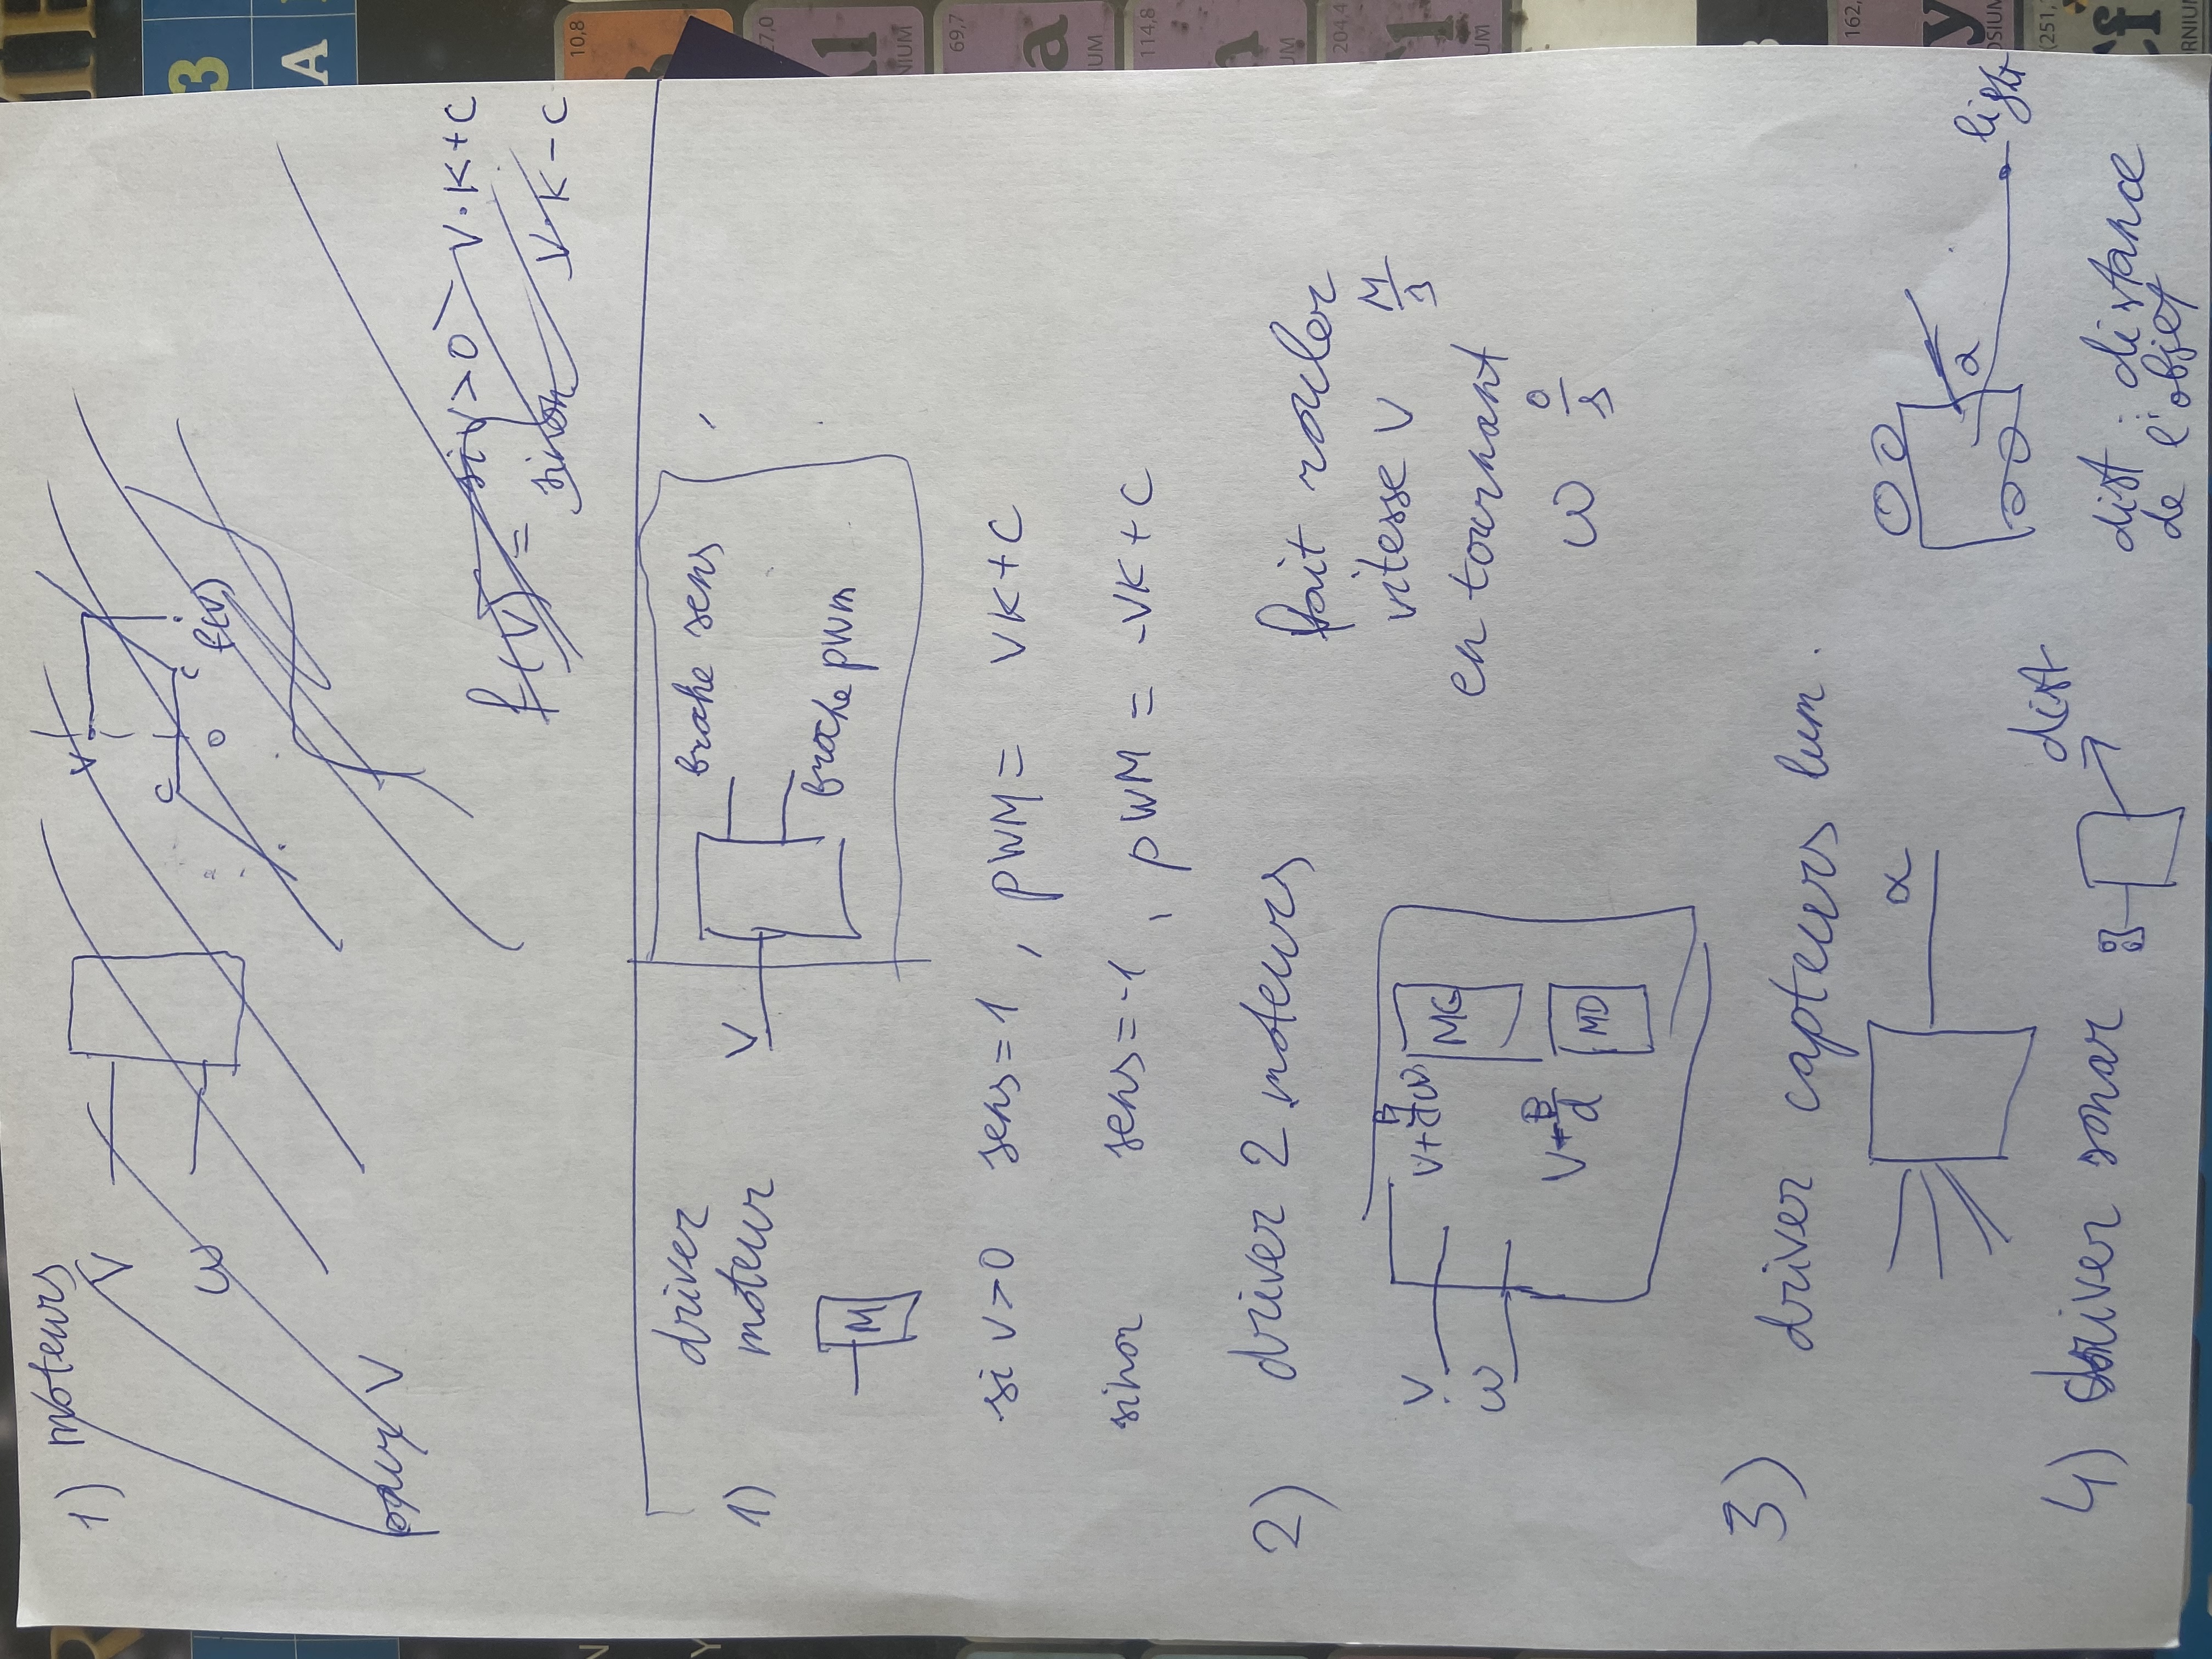 1) moteurs
V
ω
V
C
C
0
f(V)
pour V
f(V) = si V>0 V·K+C
sinon V·K-C
1) driver
moteur
M
V
broche sens
broche pwm
si V>0 sens=1, pWM= VK+C
sinon sens=-1, pWM = -VK+C
2) driver 2 moteurs
V
ω
MG
MD
fait rouler
vitesse V M/s
en tournant
ω °/s
3) driver capteurs lum.
α
α
light
4) driver sonar
dist
dist : distance
de l'objet
3
A
10,8
69,7
114,8
204,4
162,
(251,
Cf